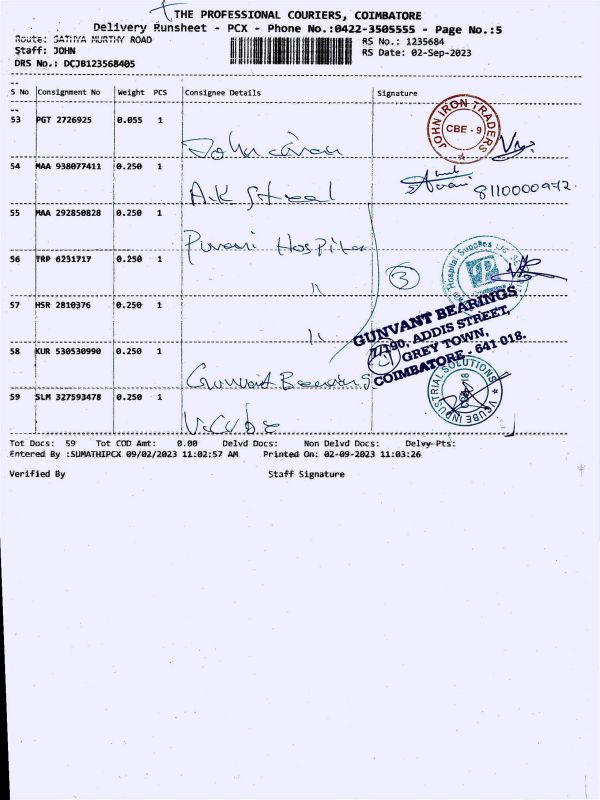 THE PROFESSIONAL COURIERS, COIMBATORE
Delivery Runsheet - PCX - Phone No.:0422-3505555 - Page No.:5
Route: SATHYA MURTHY ROAD
RS No.: 1235684
Staff: JOHN
RS Date: 02-Sep-2023
DRS No.: DCJB123568405
S No Consignment No Weight PCS Consignee Details Signature
53 PGT 2726925 0.055 1
JOHN IRON TRADERS
CBE - 9
54 MAA 938077411 0.250 1 A.K Steel
8110000972
55 MAA 292850828 0.250 1 Hospital
56 TRP 6231717 0.250 1 "
3
Hospital Supplies
57 HSR 2810376 0.250 1 "
GUNVANT BEARINGS
7/190, ADDIS STREET,
GREY TOWN,
COIMBATORE - 641 018.
58 KUR 530530990 0.250 1 Gunvant Bearings
59 SLM 327593478 0.250 1 V.Cube
VCUBE INDUSTRIAL SOLUTIONS
Tot Docs: 59 Tot COD Amt: 0.00 Delvd Docs: Non Delvd Docs: Delvy Pts:
Entered By :SUMATHIPCX 09/02/2023 11:02:57 AM Printed On: 02-09-2023 11:03:26
Verified By Staff Signature